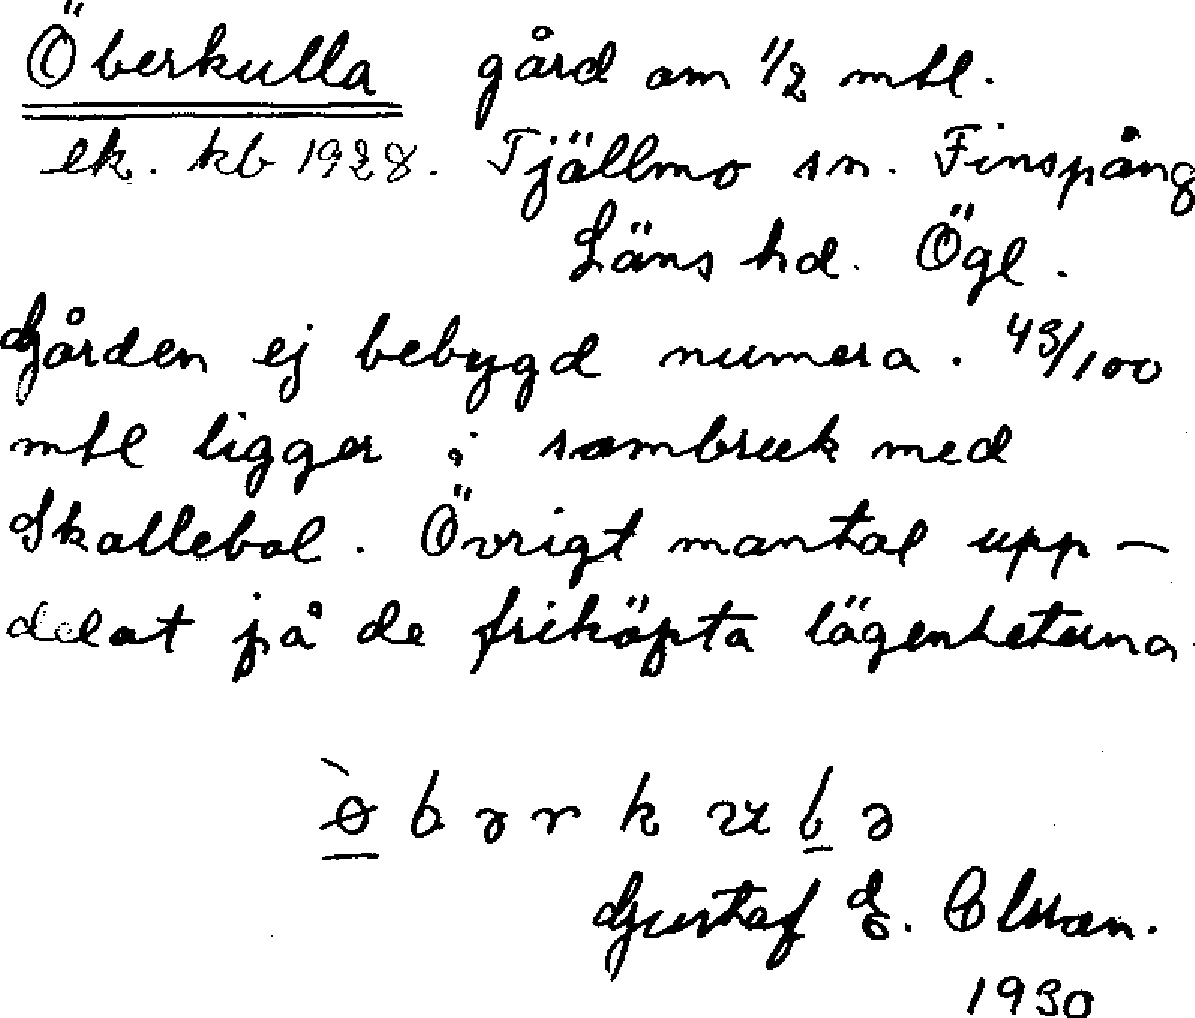 Öberkulla gård om 1/2 mtl.
ek. kb 1928. Tjällmo sn. Finspång
Läns hd. Ögl.
Gården ej bebygd numera. 43/100
mtl ligger i sambruk med
Skallebol. Övrigt mantal upp-
delat på de friköpta lägenheterna.
Gustaf E. Olsson.
1930